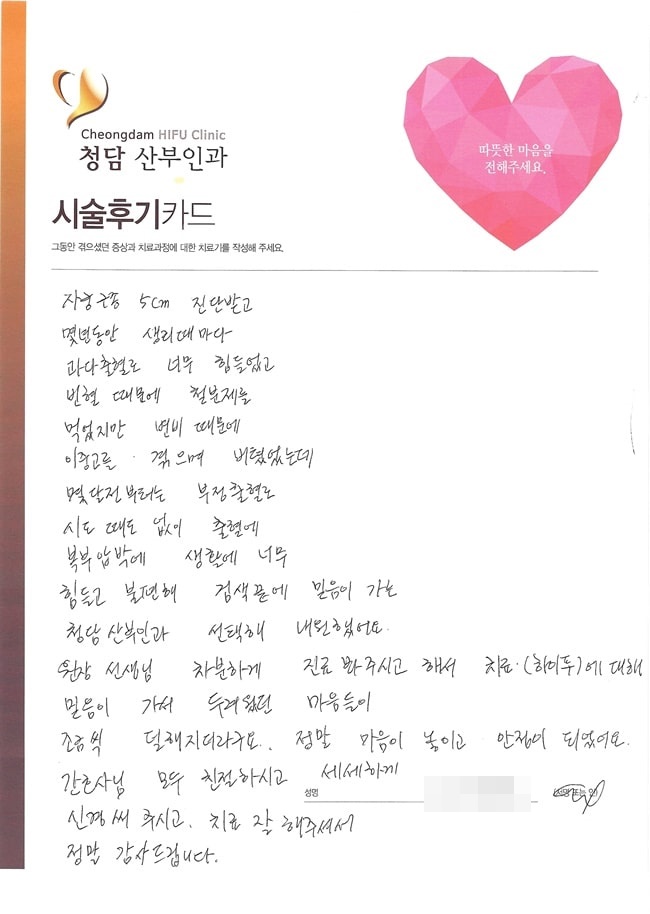 Cheongdam HIFU Clinic
청담 산부인과
따뜻한 마음을
전해주세요.
시술후기카드
그동안 겪으셨던 증상과 치료과정에 대한 치료기를 작성해 주세요.
자궁근종 5cm 진단받고
몇년동안 생리때마다
과다출혈로 너무 힘들었고
빈혈 때문에 철분제를
먹었지만 변비 때문에
이중고를 겪으며 버텼었는데
몇달전부터는 부정출혈로
시도 때도 없이 출혈에
복부압박에 생활에 너무
힘들고 불편해 검색끝에 믿음이 가는
청담산부인과 선택해 내원했어요.
원장 선생님 차분하게 진료 봐주시고 해서 치료(하이푸)에 대해
믿음이 가서 두려웠던 마음들이
조금씩 덜해지더라구요. 정말 마음이 놓이고 안정이 되었어요.
간호사님 모두 친절하시고 세세하게
성명
신경써 주시고, 치료 잘 해주셔서
정말 감사드립니다.